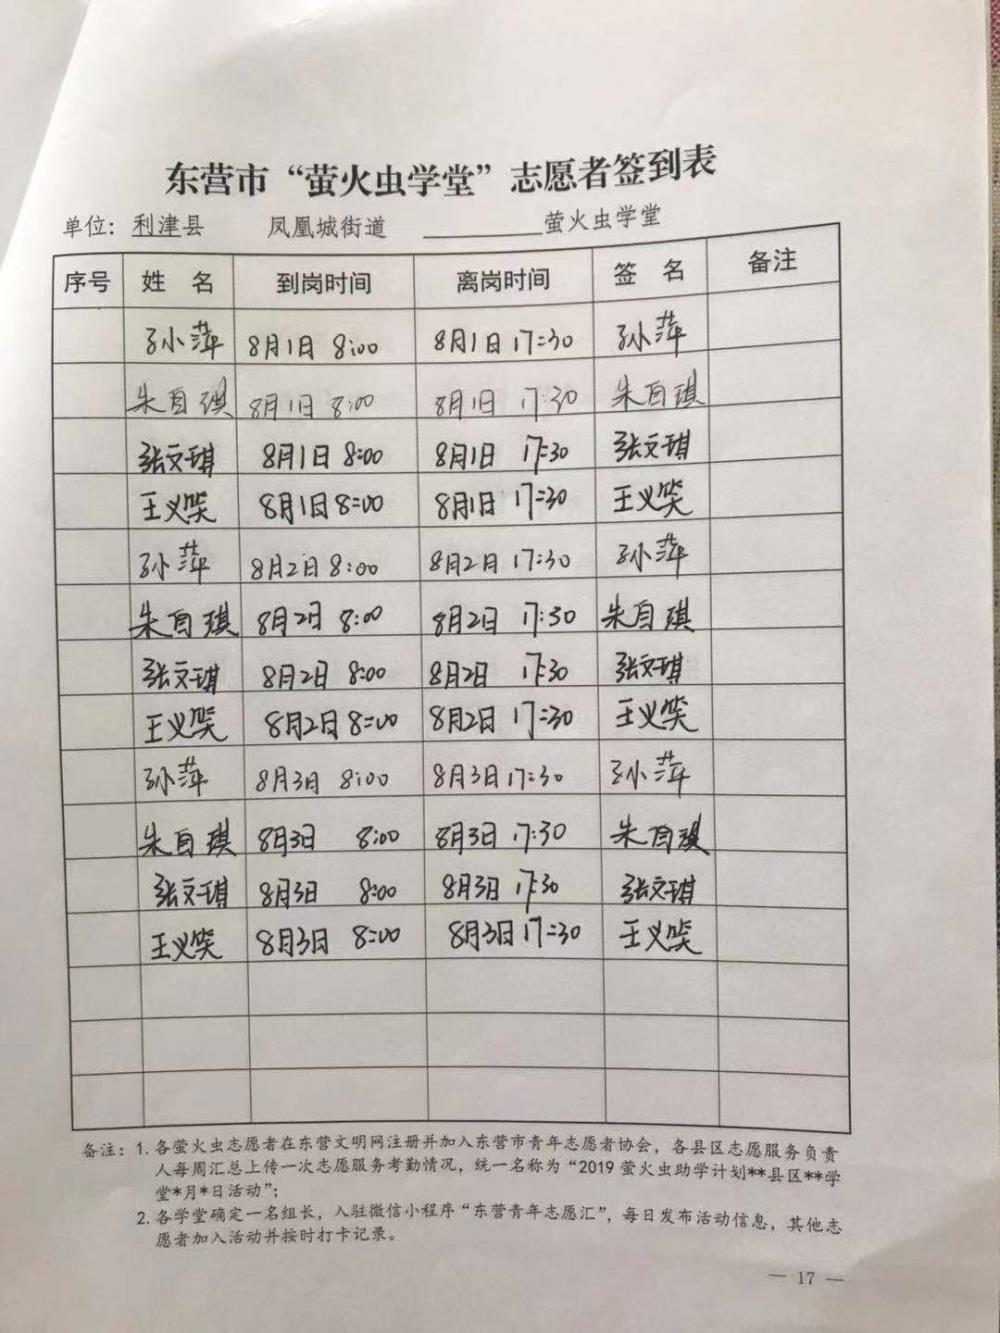 东营市“萤火虫学堂”志愿者签到表
单位：利津县 凤凰城街道 ________萤火虫学堂
序号 姓 名 到岗时间 离岗时间 签 名 备注
孙小萍 8月1日 8:00 8月1日 17:30 孙小萍
朱自琪 8月1日 8:00 8月1日 17:30 朱自琪
张文琪 8月1日 8:00 8月1日 17:30 张文琪
王义笑 8月1日 8:00 8月1日 17:30 王义笑
孙小萍 8月2日 8:00 8月2日 17:30 孙小萍
朱自琪 8月2日 8:00 8月2日 17:30 朱自琪
张文琪 8月2日 8:00 8月2日 17:30 张文琪
王义笑 8月2日 8:00 8月2日 17:30 王义笑
孙小萍 8月3日 8:00 8月3日 17:30 孙小萍
朱自琪 8月3日 8:00 8月3日 17:30 朱自琪
张文琪 8月3日 8:00 8月3日 17:30 张文琪
王义笑 8月3日 8:00 8月3日 17:30 王义笑
备注：1. 各萤火虫志愿者在东营文明网注册并加入东营市青年志愿者协会，各县区志愿服务负责
人每周汇总上传一次志愿服务考勤情况，统一名称为“2019 萤火虫助学计划**县区**学
堂*月*日活动”；
2. 各学堂确定一名组长，入驻微信小程序“东营青年志愿汇”，每日发布活动信息，其他志
愿者加入活动并按时打卡记录。
— 17 —